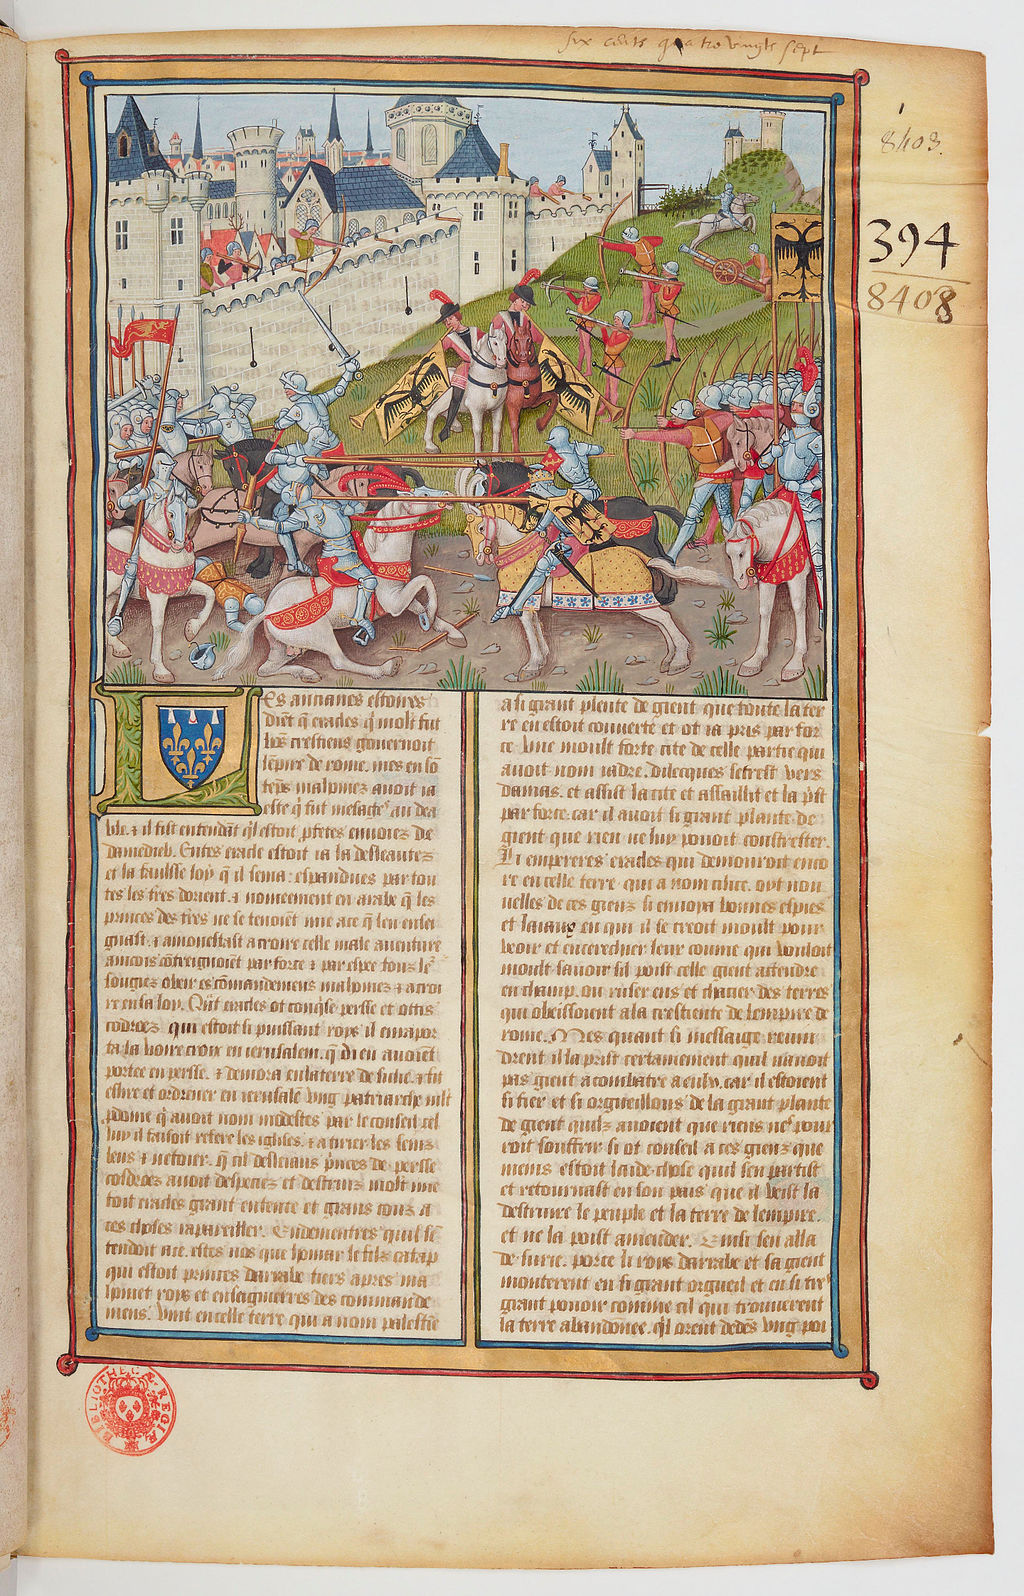 six cents quatre vingts sept
8403.
394
8408
LEs ancianes estoires
diēt q̄ eracles q̄ molt fut
bō crestiens gouernoit
lēpire de rome. mes en sō
tēps malpmez auoit ia
este q̄ fut mesagē au dea
ble. ⁊ il fist entendāt q̄l estoit p̄fetes enuoiez de
damedieu. Entēs eracle estoit ia la desleautez
et la faulse loy q̄ il sema: espandues par tou
tes les tr̄es dorient. ⁊ nomeement en arabe q̄ les
princes des tr̄es ne se tenoiēt mie ace q̄ len ensei
gnast. ⁊ amonestast a croire celle male auenture
aincois cōtreignoiēt par force ⁊ par espee touz le
sougiez obeir es cōmandemens malpmez ⁊ acroi
re en sa loy. Qn̄t eracles ot conq̄se persse et ottis
codroez qui estoit si puissant roys il emapor
ta la voire croix en ierusalem. q̄ len auoiēt
portee en persse. ⁊ demora en la terre de surie. ⁊ fit
eslire et ordener en ierusalē vng patriarche mlt
pdome q̄ auoit nom modestes par le conseil cel
luy il faisoit refere les iglises. ⁊ atirier les sainz
leus ⁊ netoier. q̄ cil desleiaus p̄nces de persse
cosdroez auoit despeciez et destruiz molt mist
tout eracles grant entente et grans couz a
ces choses rapareiller. Endementres quil sē
tendoit ace. estes uos que homar le filz catap
qui estoit princes darrabe tiers apres ma
lpmet roys et enseignierres des commande
mens. vint en celle terre qui a nom palestīe
a si grant plente de gient que toute la ter
re en estoit couuerte et ot ia pris par for
ce vne moult forte cite de celle partie qui
auoit nom iadre. dilecques setrest vers
damas. et assist la cite et assaillit et la p̄st
par force. car il auoit si grant plante de
gient que rien ne luy pouoit contrester.
Li empereres eracles qui demouroit enco
re en celle terre qui a nom cilice. oyt nou
uelles de ces gienz si enuoya bonnes espies
et lauaux en qui il se creoit moult pour
veoir et encerchier leur couine qui vouloit
moult sauoir sil poist celle gient actendre
en champ. ou ruser ens et chacier des terres
qui obeissoient a la crestiente de lempire de
rome. Mes quant si messaige reuin
drent il la prist certainement quil nauoit
pas gient a combatre a eulx. car il estoient
si fier et si orgueillous de la grant plante
de gient quilz auoient que riens nes pour
roit souffrir si ot conseil a ces gienz que
meins estoit laide chose quil sen partist
et retournast en son pais que il veist la
destruire le peuple et la terre de lempire.
et ne la poist amender. Einsi sen alla
de surie. porce li roys darrabe et sa gient
monterent en si grant orgueil et en si tres
grant pouoir comme cil qui trouuerent
la terre abandonee. q̄l orent dedēs vng poi
BIBLIOTHECÆ REGIÆ